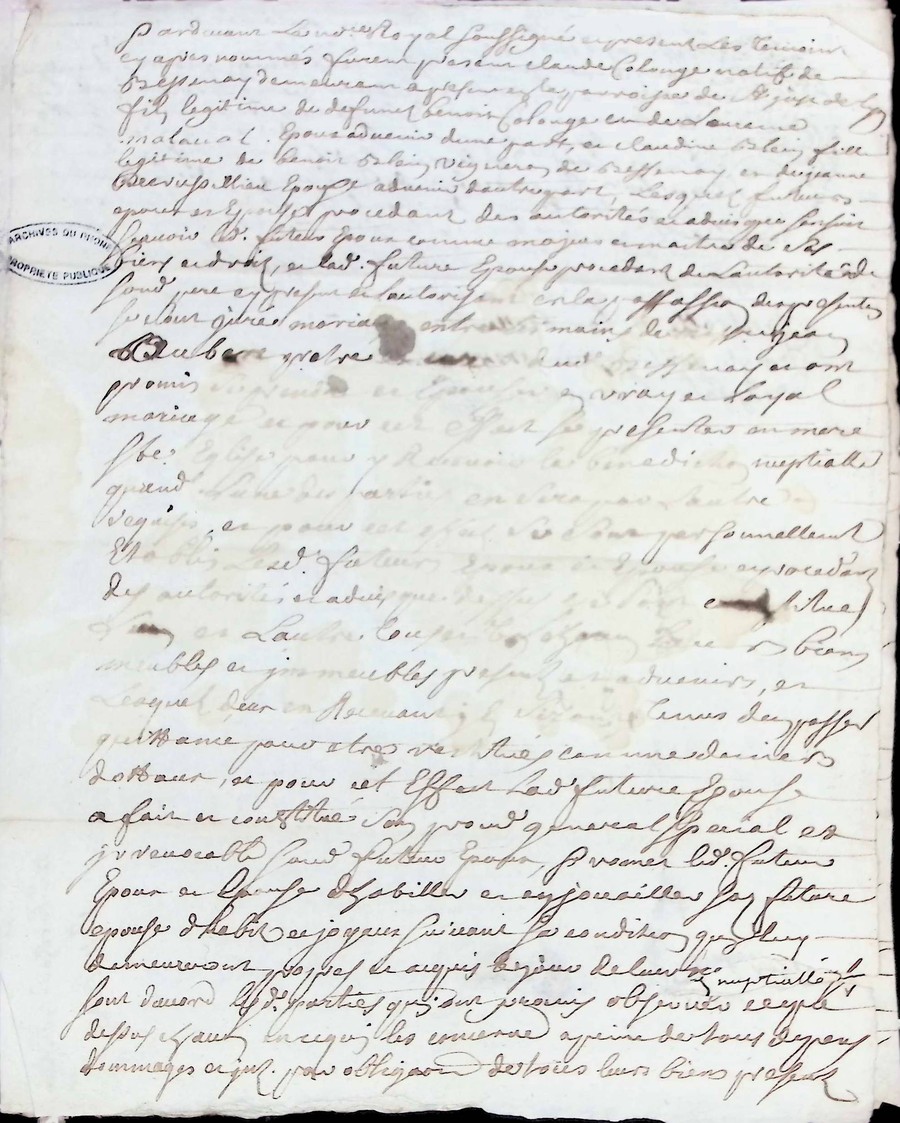 Pardevant Le no.re Royal soussigné en present Les Temoins
cy apres nommés furent present claude Colonge natif de
Bessenay demeurant apresent en la parroisse de St just de
fils legitime de defunct benoist Colonge et de Laurence
matacat. Epoux advenir dune part, et claudine Blein fille
legitime de benoit Blein vigneron de Bessenay et de jeanne
Epouse advenir dautrepart, Lesquels futurs
epoux et Epouse procedant des autorités et advis que sensuit
scavoir led. futur Epoux comme majeur et maitre de ses
biens et droits, et lad. future Epouse procedant de Lautorité de
sond. pere cy present et Lautorisant en la passation des presentes
se sont juré mariage entre mains de jean
prêtre Bessenay et ont
promis prendre et Epouser en vray et loyal
mariage et pour cet effect se presenter en mere
Ste Eglise pour y Recevoir la benediction nuptialle
quand Lune des parties en sera par Lautre
requise, et pour cet effet se sont personnellement
Etablis Lesd. futurs Epoux et Epouse et procedant
des autorités et advis que dessus se sont
Lun et Lautre tous et chacuns Leurs biens
meubles et immeubles presents et advenirs, et
Lesquels deux en Recevant tenus den passer
quittance pour etre restitués comme deniers
dottaux, et pour cet Effect Lad. future Epouse
a fait et constitué son procur general special et
irrevocable sond. futur Epoux, Promet led. futur
Epoux et Epouse dhabiller et enjouailler sa future
epouse dhabits et joyaux suivant sa condition qui luy
demeureront propres et acquis du jour de leur nuptialle
sont daccord lesd. parties qui ont promis observer ce que
dessus chacun en ce qui les concerne a peine de tous depens
dommages et int. par obligaon de tous leurs biens presents
ARCHIVES DU RHONE
PROPRIETE PUBLIQUE